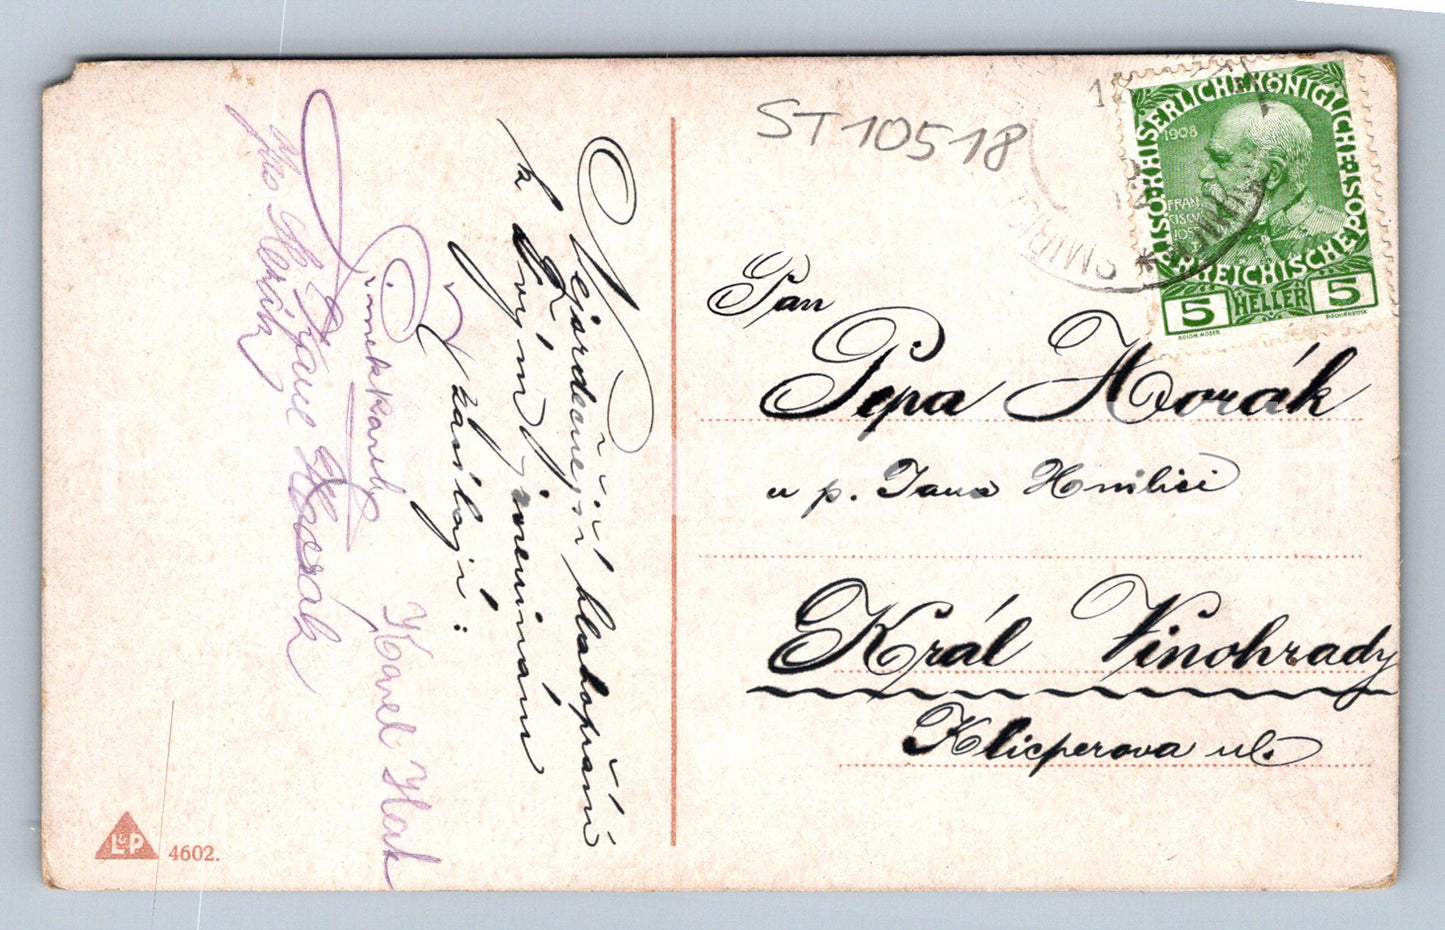 ST10518
KAISERLICHE KÖNIGLICHE
ÖSTERREICHISCHE POST
1908
FRAN
5 HELLER 5
SMIŘICE
Pan
Pepa Horák
u p. Jana Hniličí
Král Vinohrady
Klicperova ul.
Nejsrdečnější blahopřání
k Tvým jmeninám
zasílají:
Karel Hork
Horák
L&P 4602.